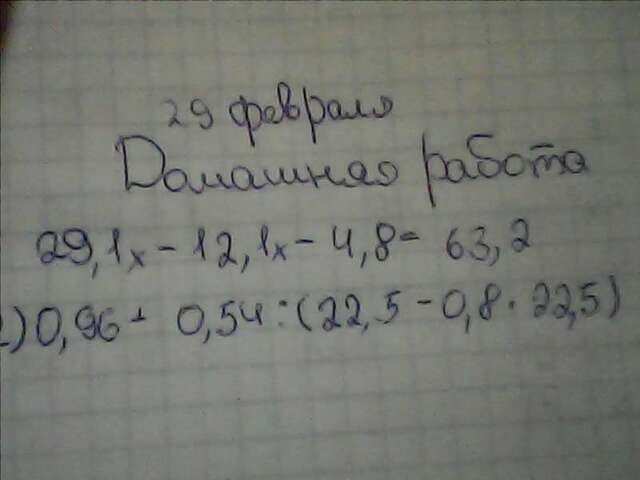 29 февраля
Домашная работа
29,1x - 12,1x - 4,8 = 63,2
2) 0,96 + 0,54 : (22,5 - 0,8 · 22,5)